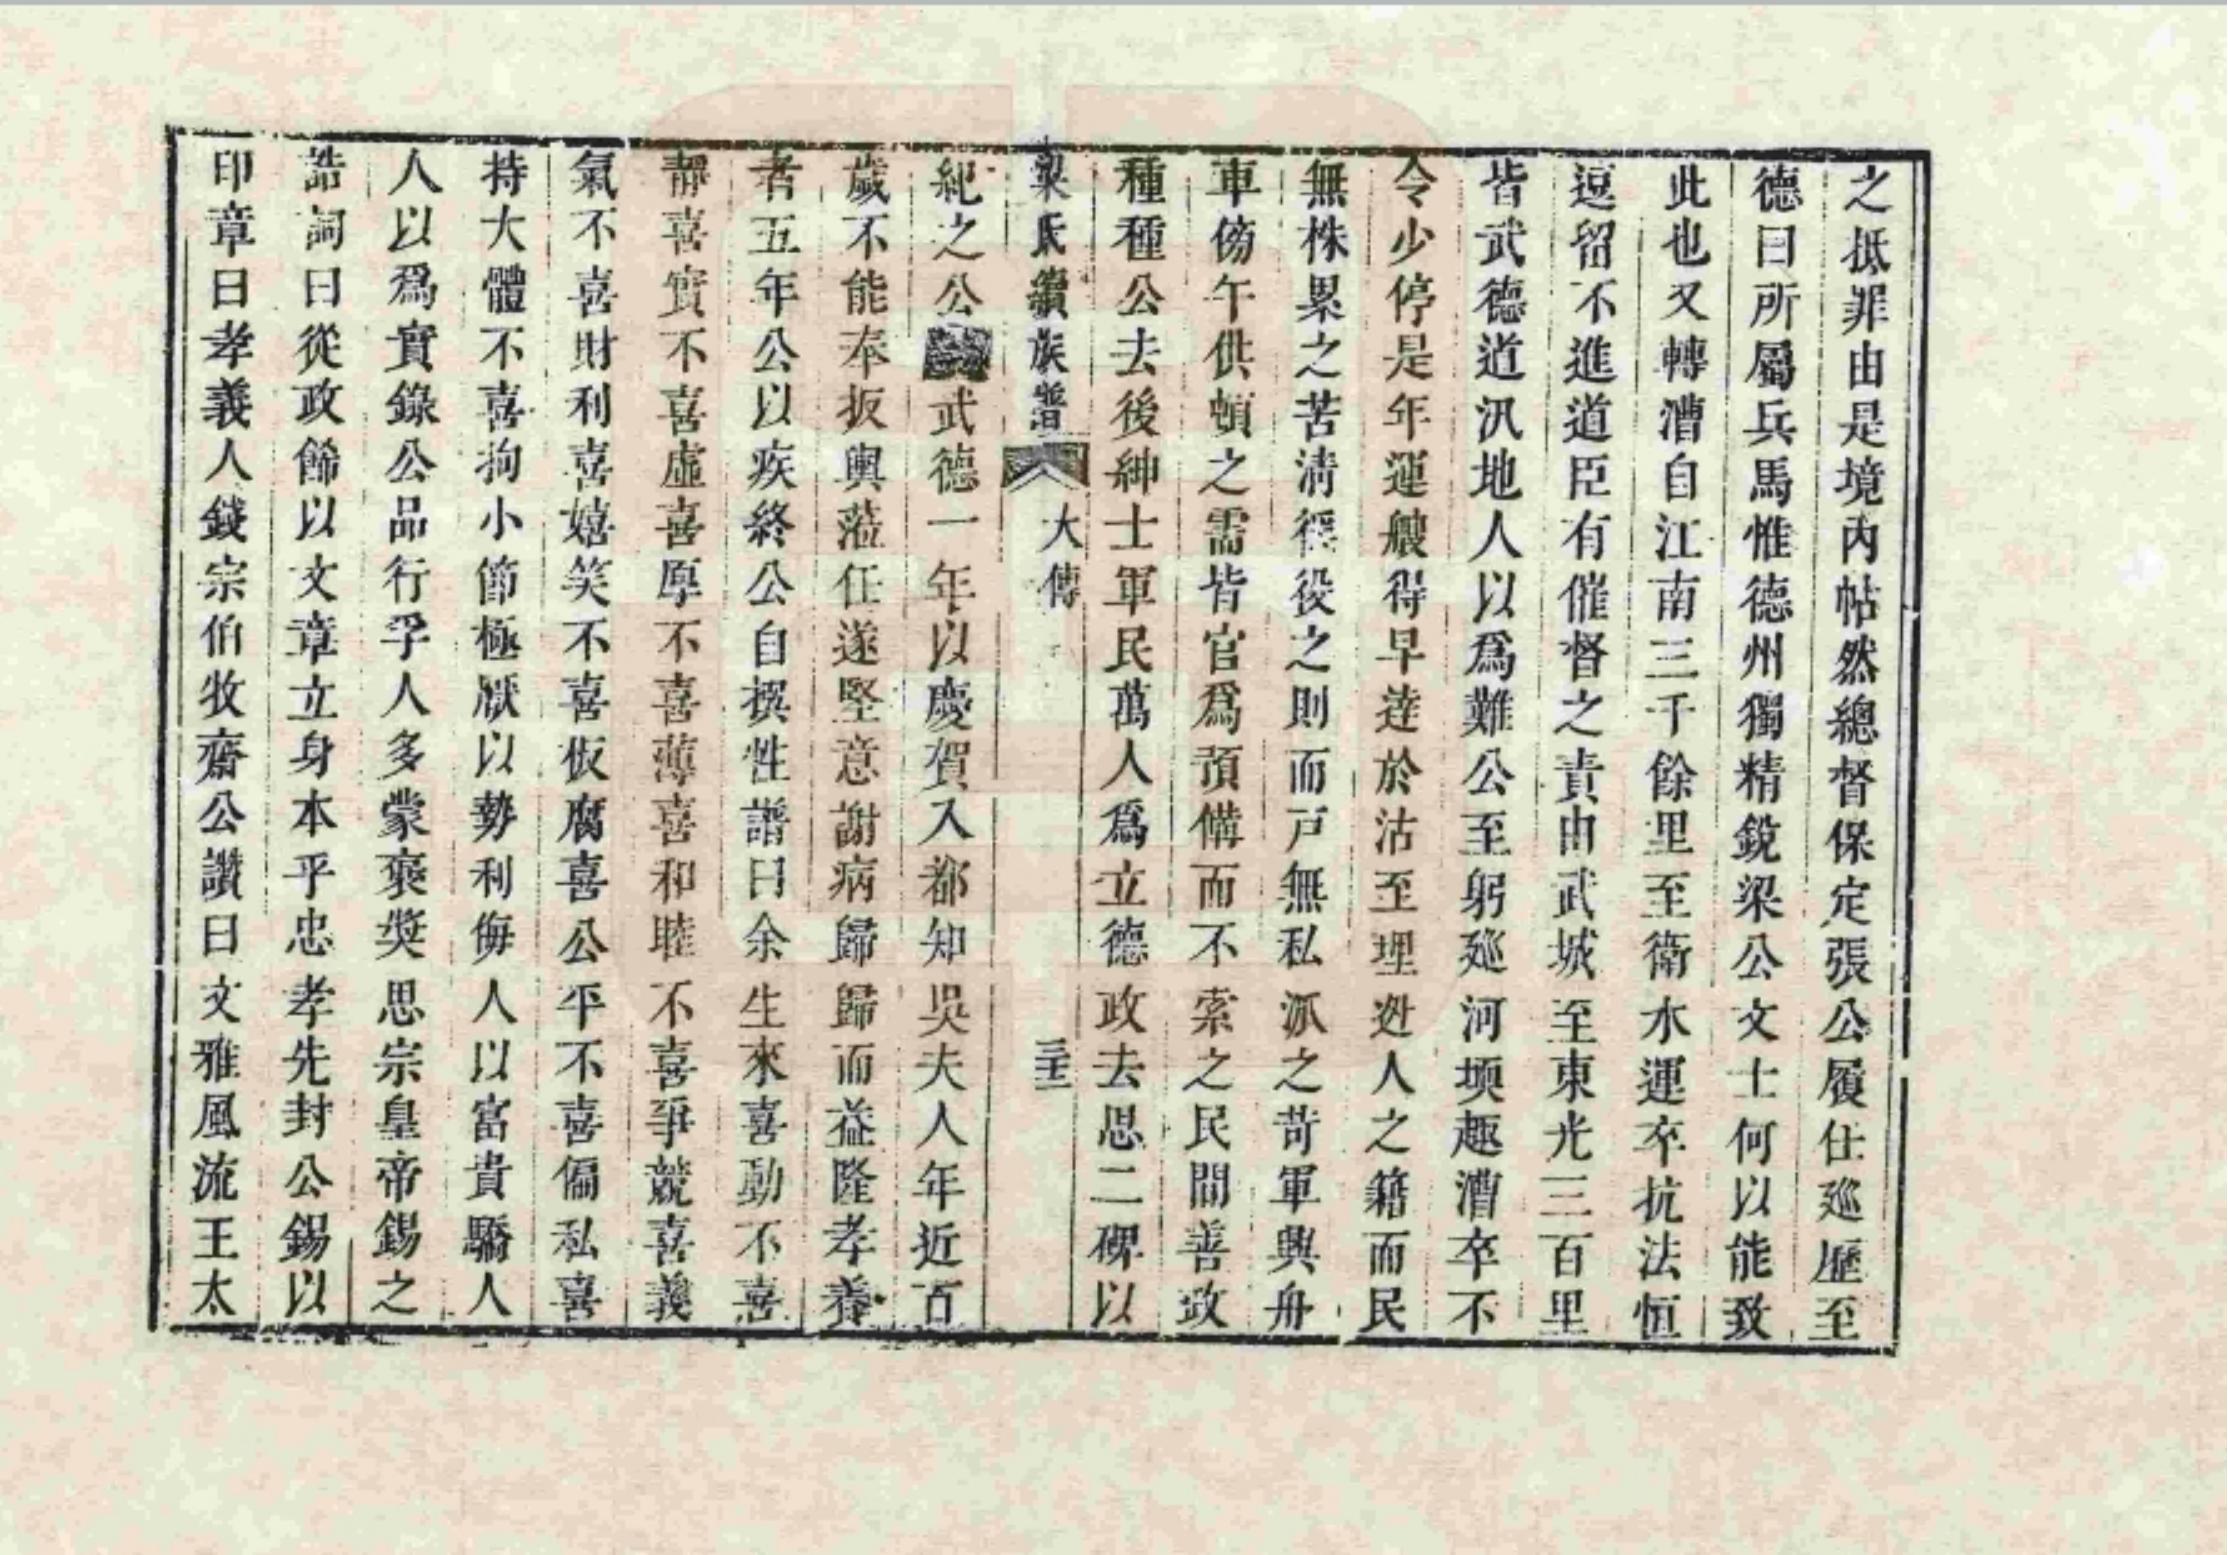 之抵罪由是境內帖然總督保定張公履仕廵歷至
德曰所屬兵馬惟德州獨精銳梁公文士何以能致
此也又轉漕自江南三千餘里至衛水運卒抗法恒
逗留不進道臣有催督之責由武城至東光三百里
皆武德道汛地人以爲難公至躬廵河壖趣漕卒不
令少停是年運艘得早達於沽至理迯人之籍而民
無株累之苦清徭役之則而戸無私派之苛軍興舟
車傍午供頓之需皆官爲預備而不索之民間善政
種種公去後紳士軍民萬人爲立德政去思二碑以
梁氏續族譜 大傳
紀之公 武德一年以慶賀入都知吳夫人年近百
歲不能奉扳輿蒞任遂堅意謝病歸歸而益隆孝養
者五年公以疾終公自撰性譜曰余生來喜動不喜
靜喜實不喜虛喜厚不喜薄喜和睦不喜爭競喜義
氣不喜財利喜嬉笑不喜板腐喜公平不喜偏私喜
持大體不喜拘小節極厭以勢利侮人以富貴驕人
人以爲實錄公品行孚人多蒙褒奬思宗皇帝錫之
誥詞曰從政餙以文章立身本乎忠孝先封公錫以
印章曰孝義人錢宗伯牧齋公讚曰文雅風流王太